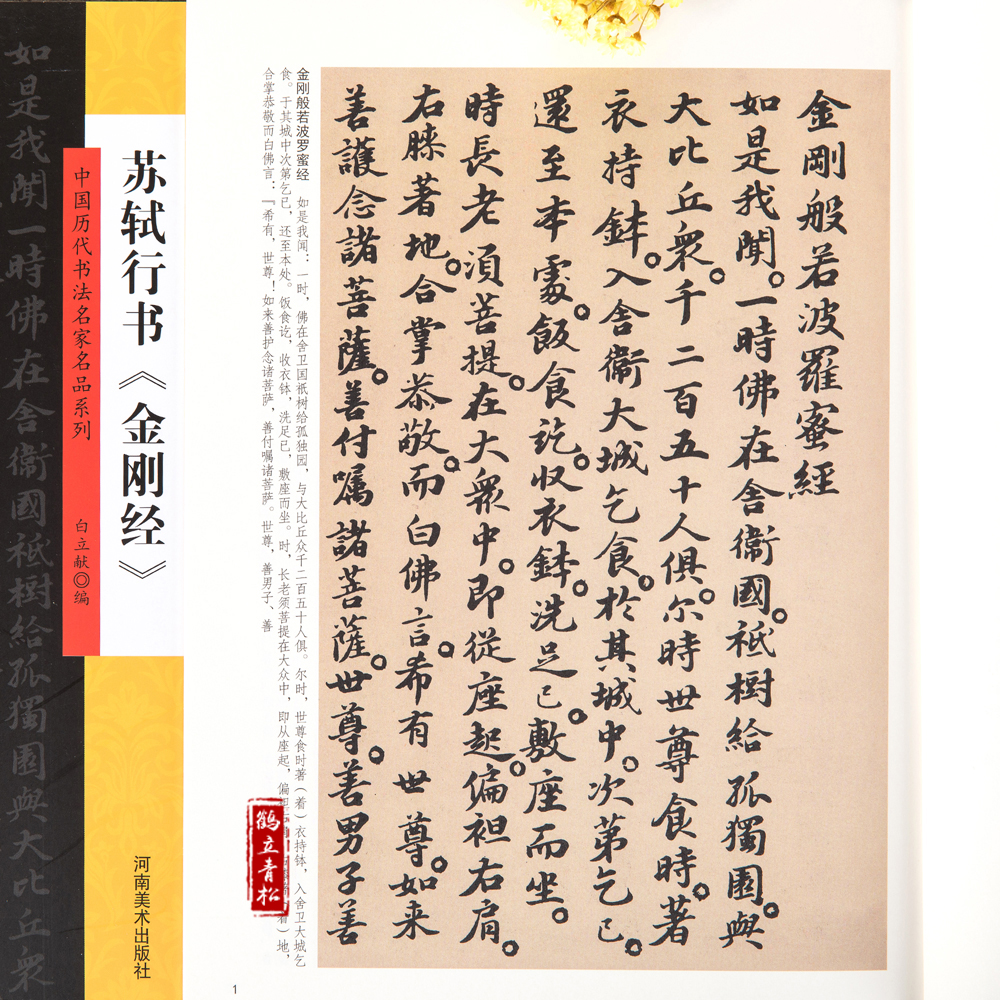 如是我聞一時佛在舍衞國祗樹給孤獨園與大比丘衆
苏轼行书《金刚经》
中国历代书法名家名品系列
白立献◎编
河南美术出版社
金剛般若波羅蜜經
如是我聞。一時佛在舍衞國。祗樹給孤獨園。與
大比丘衆。千二百五十人俱。尔時世尊食時。著
衣持鉢。入舍衞大城乞食。於其城中。次第乞已。
還至本處。飯食訖。收衣鉢。洗足已。敷座而坐。
時長老須菩提。在大衆中。即從座起。偏袒右肩。
右膝著地。合掌恭敬。而白佛言。希有世尊。如来
善護念諸菩薩。善付嘱諸菩薩。世尊。善男子善
金刚般若波罗蜜经 如是我闻：一时，佛在舍卫国祇树给孤独园，与大比丘众千二百五十人俱。尔时，世尊食时著（着）衣持钵，入舍卫大城乞
食。于其城中次第乞已，还至本处。饭食讫，收衣钵，洗足已，敷座而坐。时，长老须菩提在大众中，即从座起，偏袒 着）地，
合掌恭敬而白佛言：『希有，世尊！如来善护念诸菩萨，善付嘱诸菩萨。世尊，善男子、善
鹤立青松
1